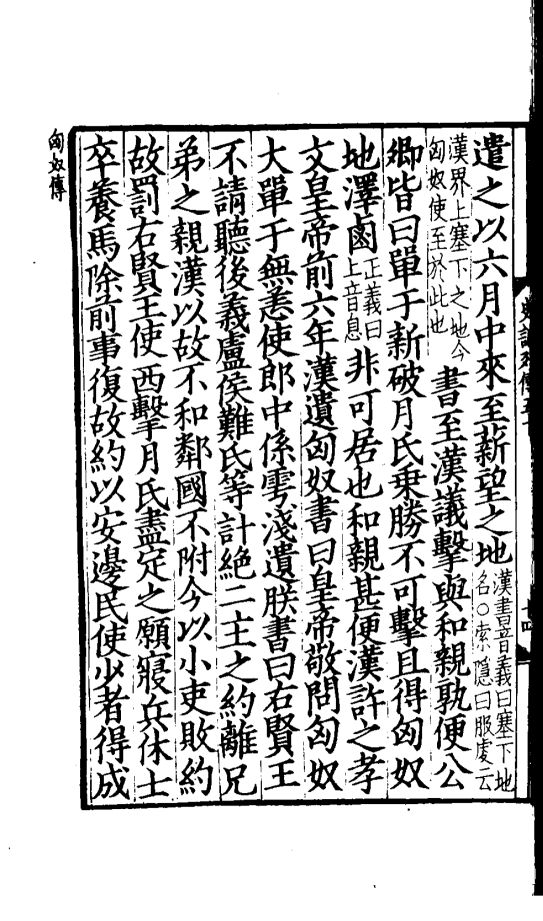 遣之以六月中來至薪望之地漢書音義曰塞下地名○索隱曰服虔云
漢界上塞下之地今匈奴使至於此也書至漢議擊與和親孰便公
卿皆曰單于新破月氏乗勝不可擊且得匈奴
地澤鹵正義曰上音息非可居也和親甚便漢許之孝
文皇帝前六年漢遺匈奴書曰皇帝敬問匈奴
大單于無恙使郎中係雩淺遺朕書曰右賢王
不請聽後義盧侯難氏等計絶二主之約離兄
弟之親漢以故不和鄰國不附今以小吏敗約
故罰右賢王使西擊月氏盡定之願寢兵休士
卒養馬除前事復故約以安邊民使少者得成
匈奴傳